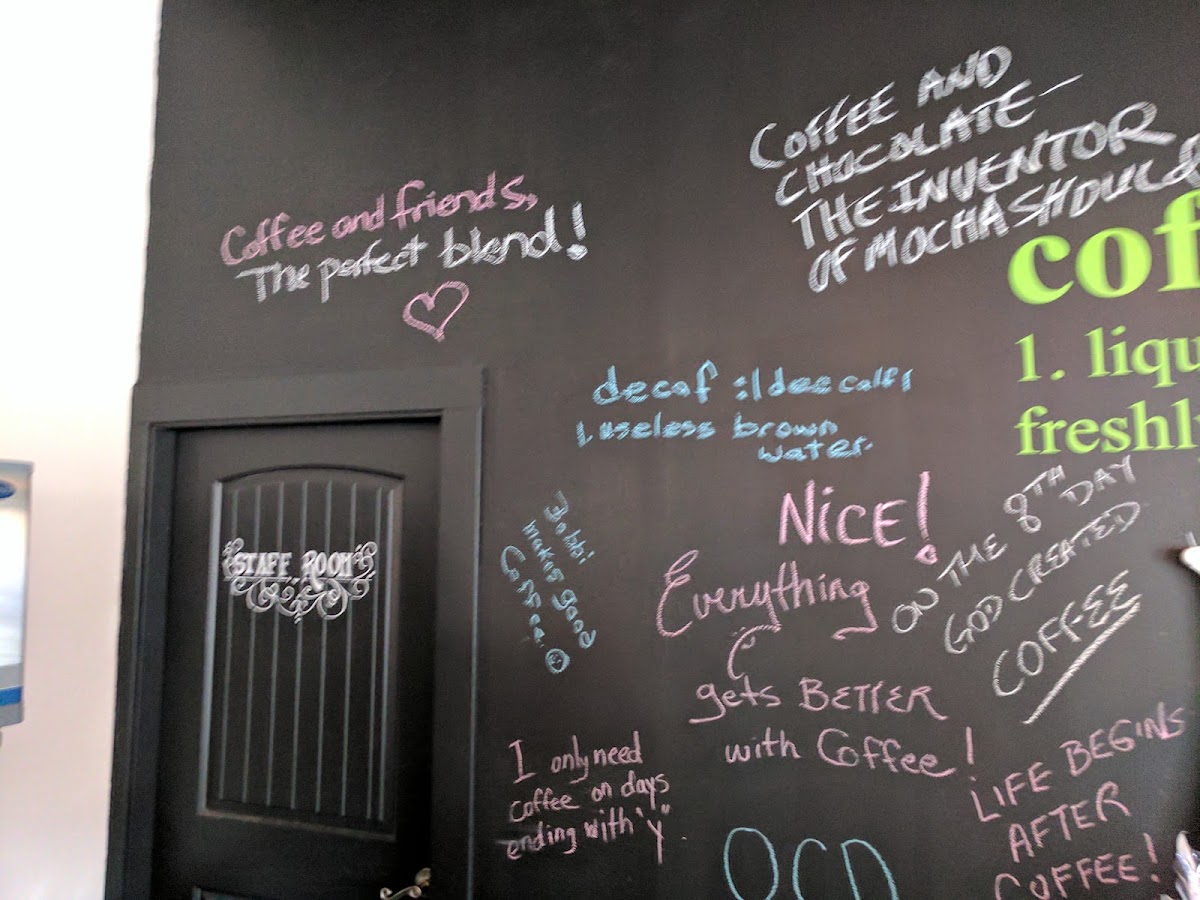 COFFEE AND
CHOCOLATE-
THE INVENTOR
OF MOCHA SHOULD
Coffee and friends,
The perfect blend!
cof
1. liqu
freshly
decaf
useless brown
water.
NICE!
Everything
gets BETTER
with Coffee!
ON THE 8TH DAY
GOD CREATED
COFFEE
STAFF ROOM
Bobbi
makes good
Coffee.
I only need
coffee on days
ending with "y".
LIFE BEGINS
AFTER
COFFEE!
OCD